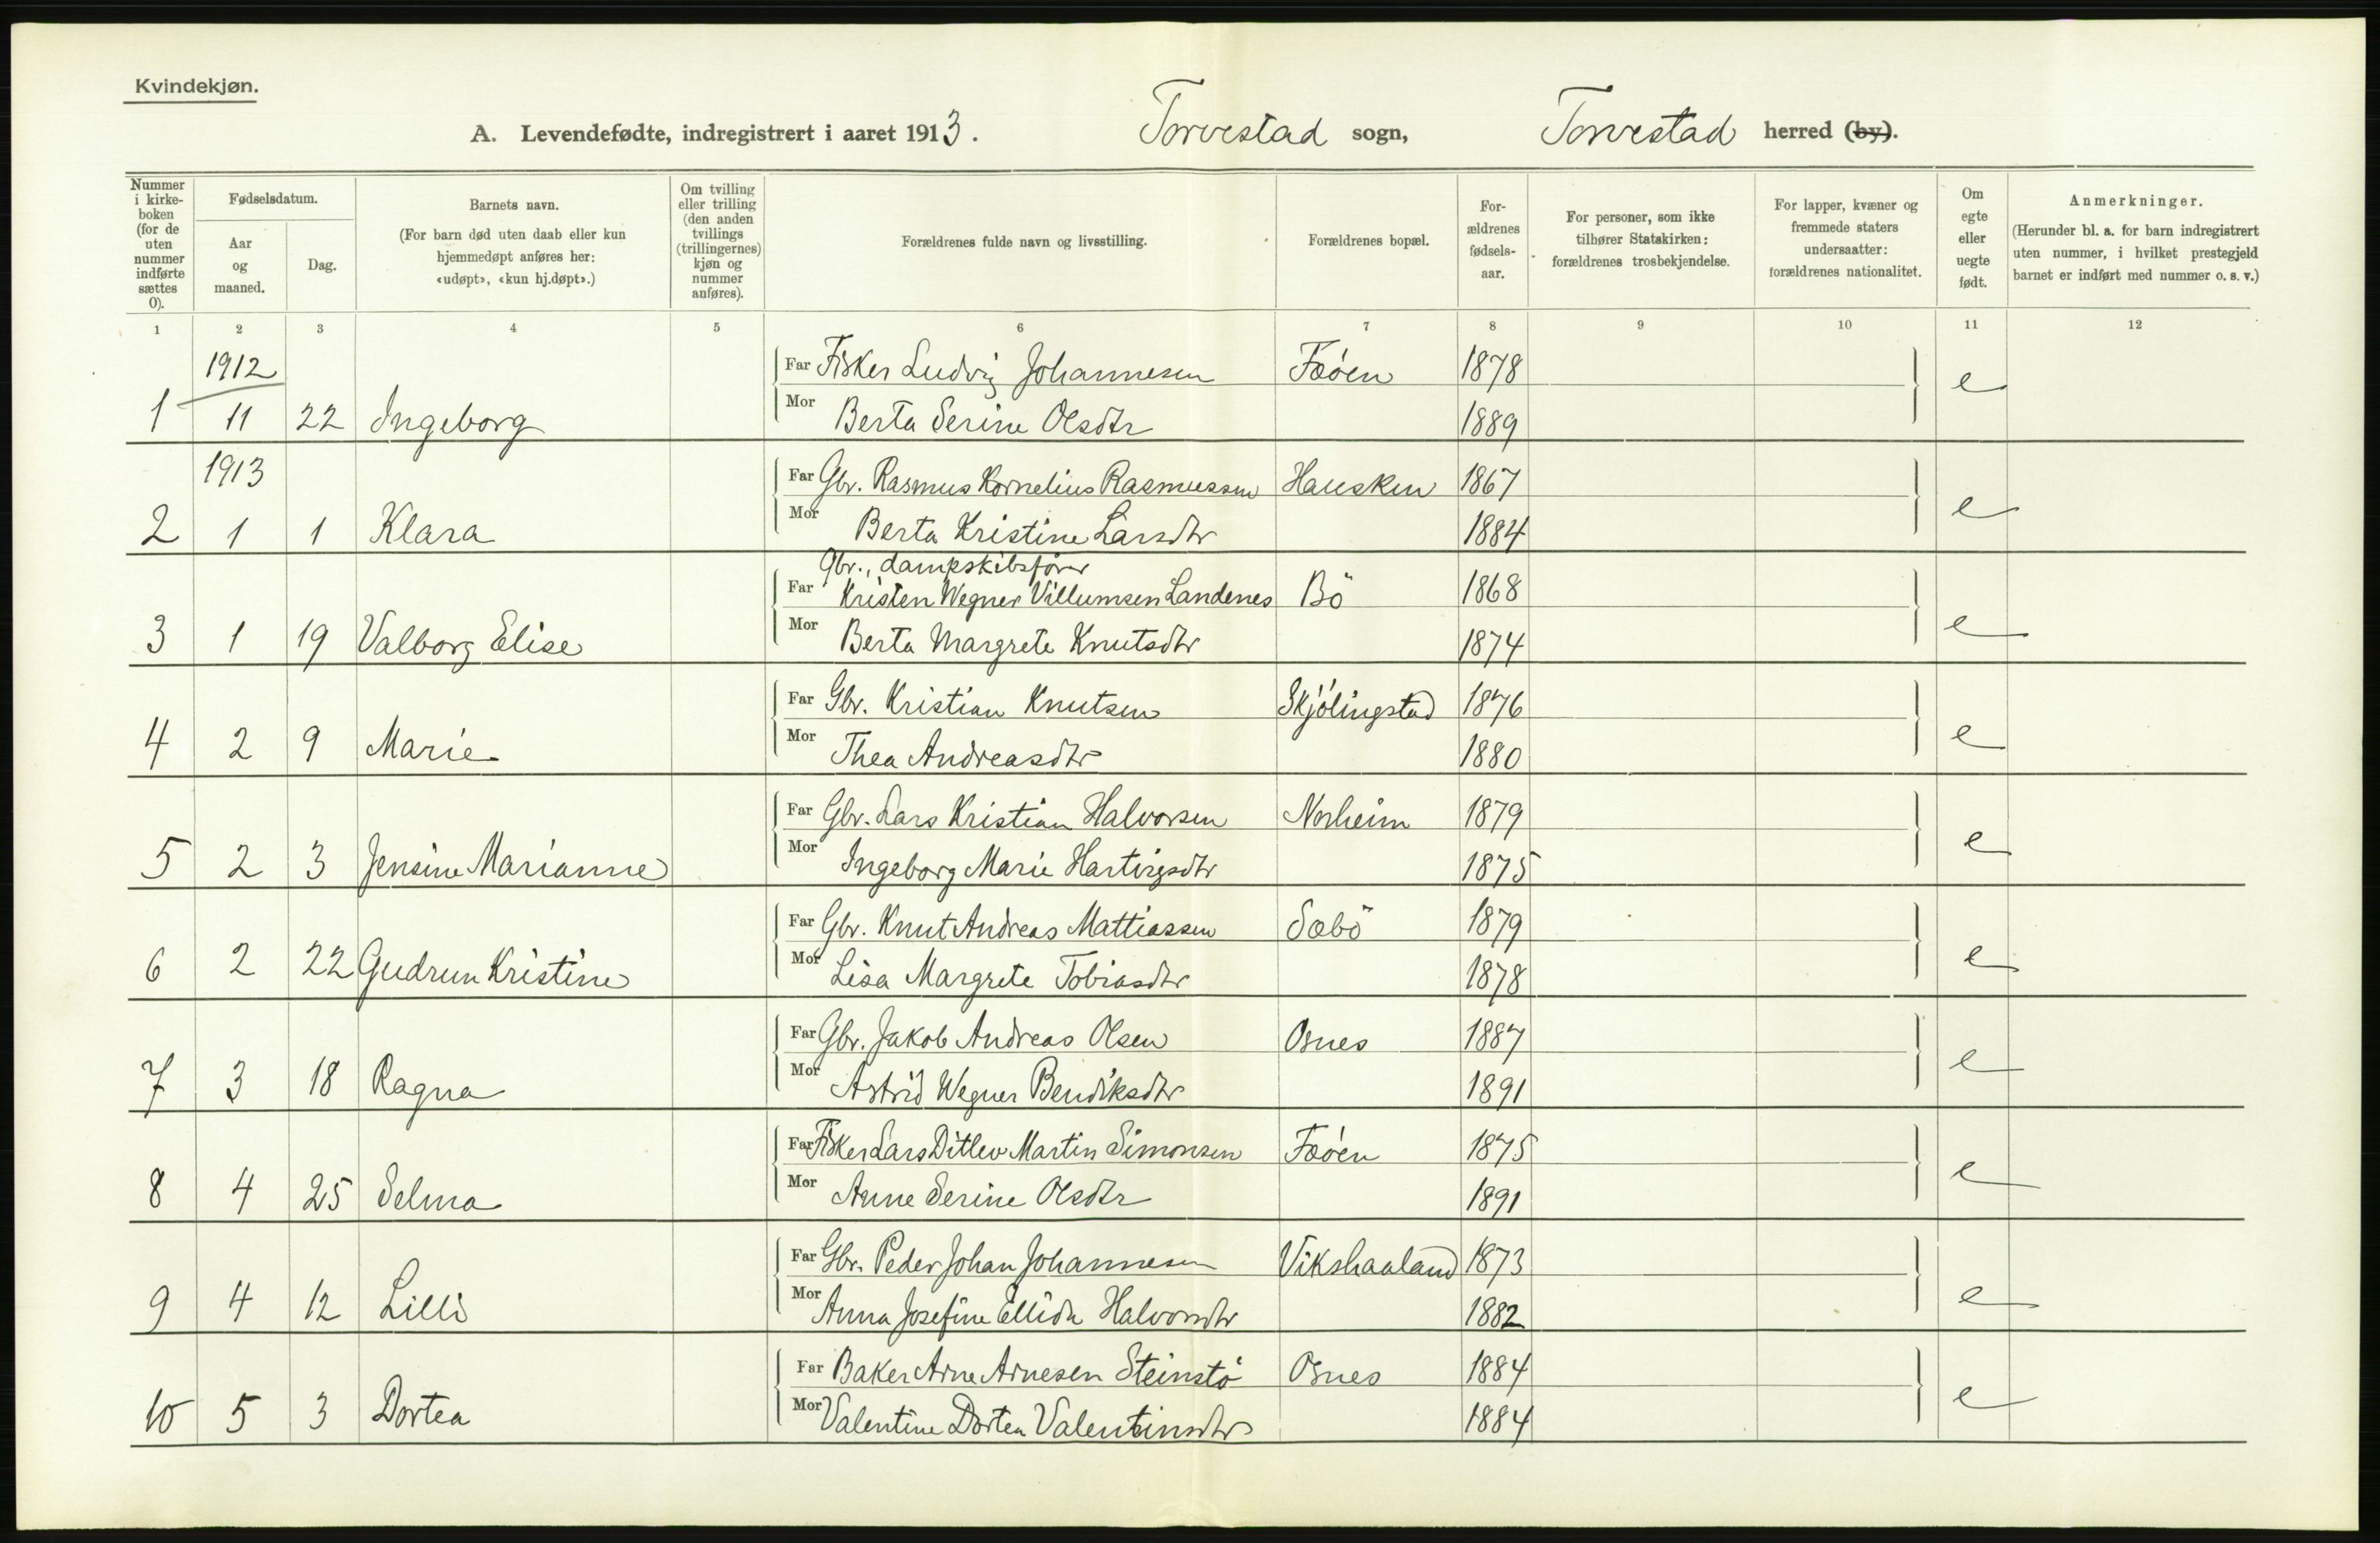 Kvindekjøn.
A. Levendefødte, indregistrert i aaret 1913. Torvestad sogn, Torvestad herred (by).
Nummer i kirke-boken (for de uten nummer indførte sættes 0).
Fødselsdatum.
Aar og maaned.
Dag.
Barnets navn.
(For barn død uten daab eller kun hjemmedøpt anføres her: «udøpt», «kun hj.døpt».)
Om tvilling eller trilling (den anden tvillings (trillingernes) kjøn og nummer anføres).
Forældrenes fulde navn og livsstilling.
Forældrenes bopæl.
For-ældrenes fødsels-aar.
For personer, som ikke tilhører Statskirken: forældrenes trosbekjendelse.
For lapper, kvæner og fremmede staters undersaatter: forældrenes nationalitet.
Om egte eller uegte født.
Anmerkninger.
(Herunder bl. a. for barn indregistrert uten nummer, i hvilket prestegjeld barnet er indført med nummer o. s. v.)
1 2 3 4 5 6 7 8 9 10 11 12
1912 Far Fisker Ludvig Johannesen Fæøen 1878 e
1 11 22 Ingeborg Mor Berta Serine Olsdtr 1889
1913 Far Gbr. Rasmus Kornelius Rasmussen Hausken 1867 e
2 1 1 Klara Mor Berta Kristine Larsdtr 1884
Gbr., dampskibsfører
Far Kristen Wegner Villumsen Landenes Bö 1868 e
3 1 19 Valborg Elise Mor Berta Margrete Knutsdtr 1874
Far Gbr. Kristian Knutsen Skjölingstad 1876 e
4 2 9 Marie Mor Thea Andreasdtr 1880
Far Gbr. Lars Kristian Halvorsen Norheim 1879 e
5 2 3 Jensine Marianne Mor Ingeborg Marie Hartvigsdtr 1875
Far Gbr. Knut Andreas Mattiassen Sæbö 1879 e
6 2 22 Gudrun Kristine Mor Lisa Margrete Tobiasdtr 1878
Far Gbr. Jakob Andreas Olsen Osnes 1887 e
7 3 18 Ragna Mor Astrid Wegner Bendiksdtr 1891
Far Fisker Lars Ditlev Martin Simonsen Fæøen 1875 e
8 4 25 Selma Mor Anne Serine Olsdtr 1891
Far Gbr. Peder Johan Johannesen Vikshaaland 1873 e
9 4 12 Lilli Mor Anna Josefine Ellida Halvorsdtr 1882
Far Baker Arne Arnesen Steinstö Osnes 1884 e
10 5 3 Dortea Mor Valentine Dortea Valentinsdtr 1884